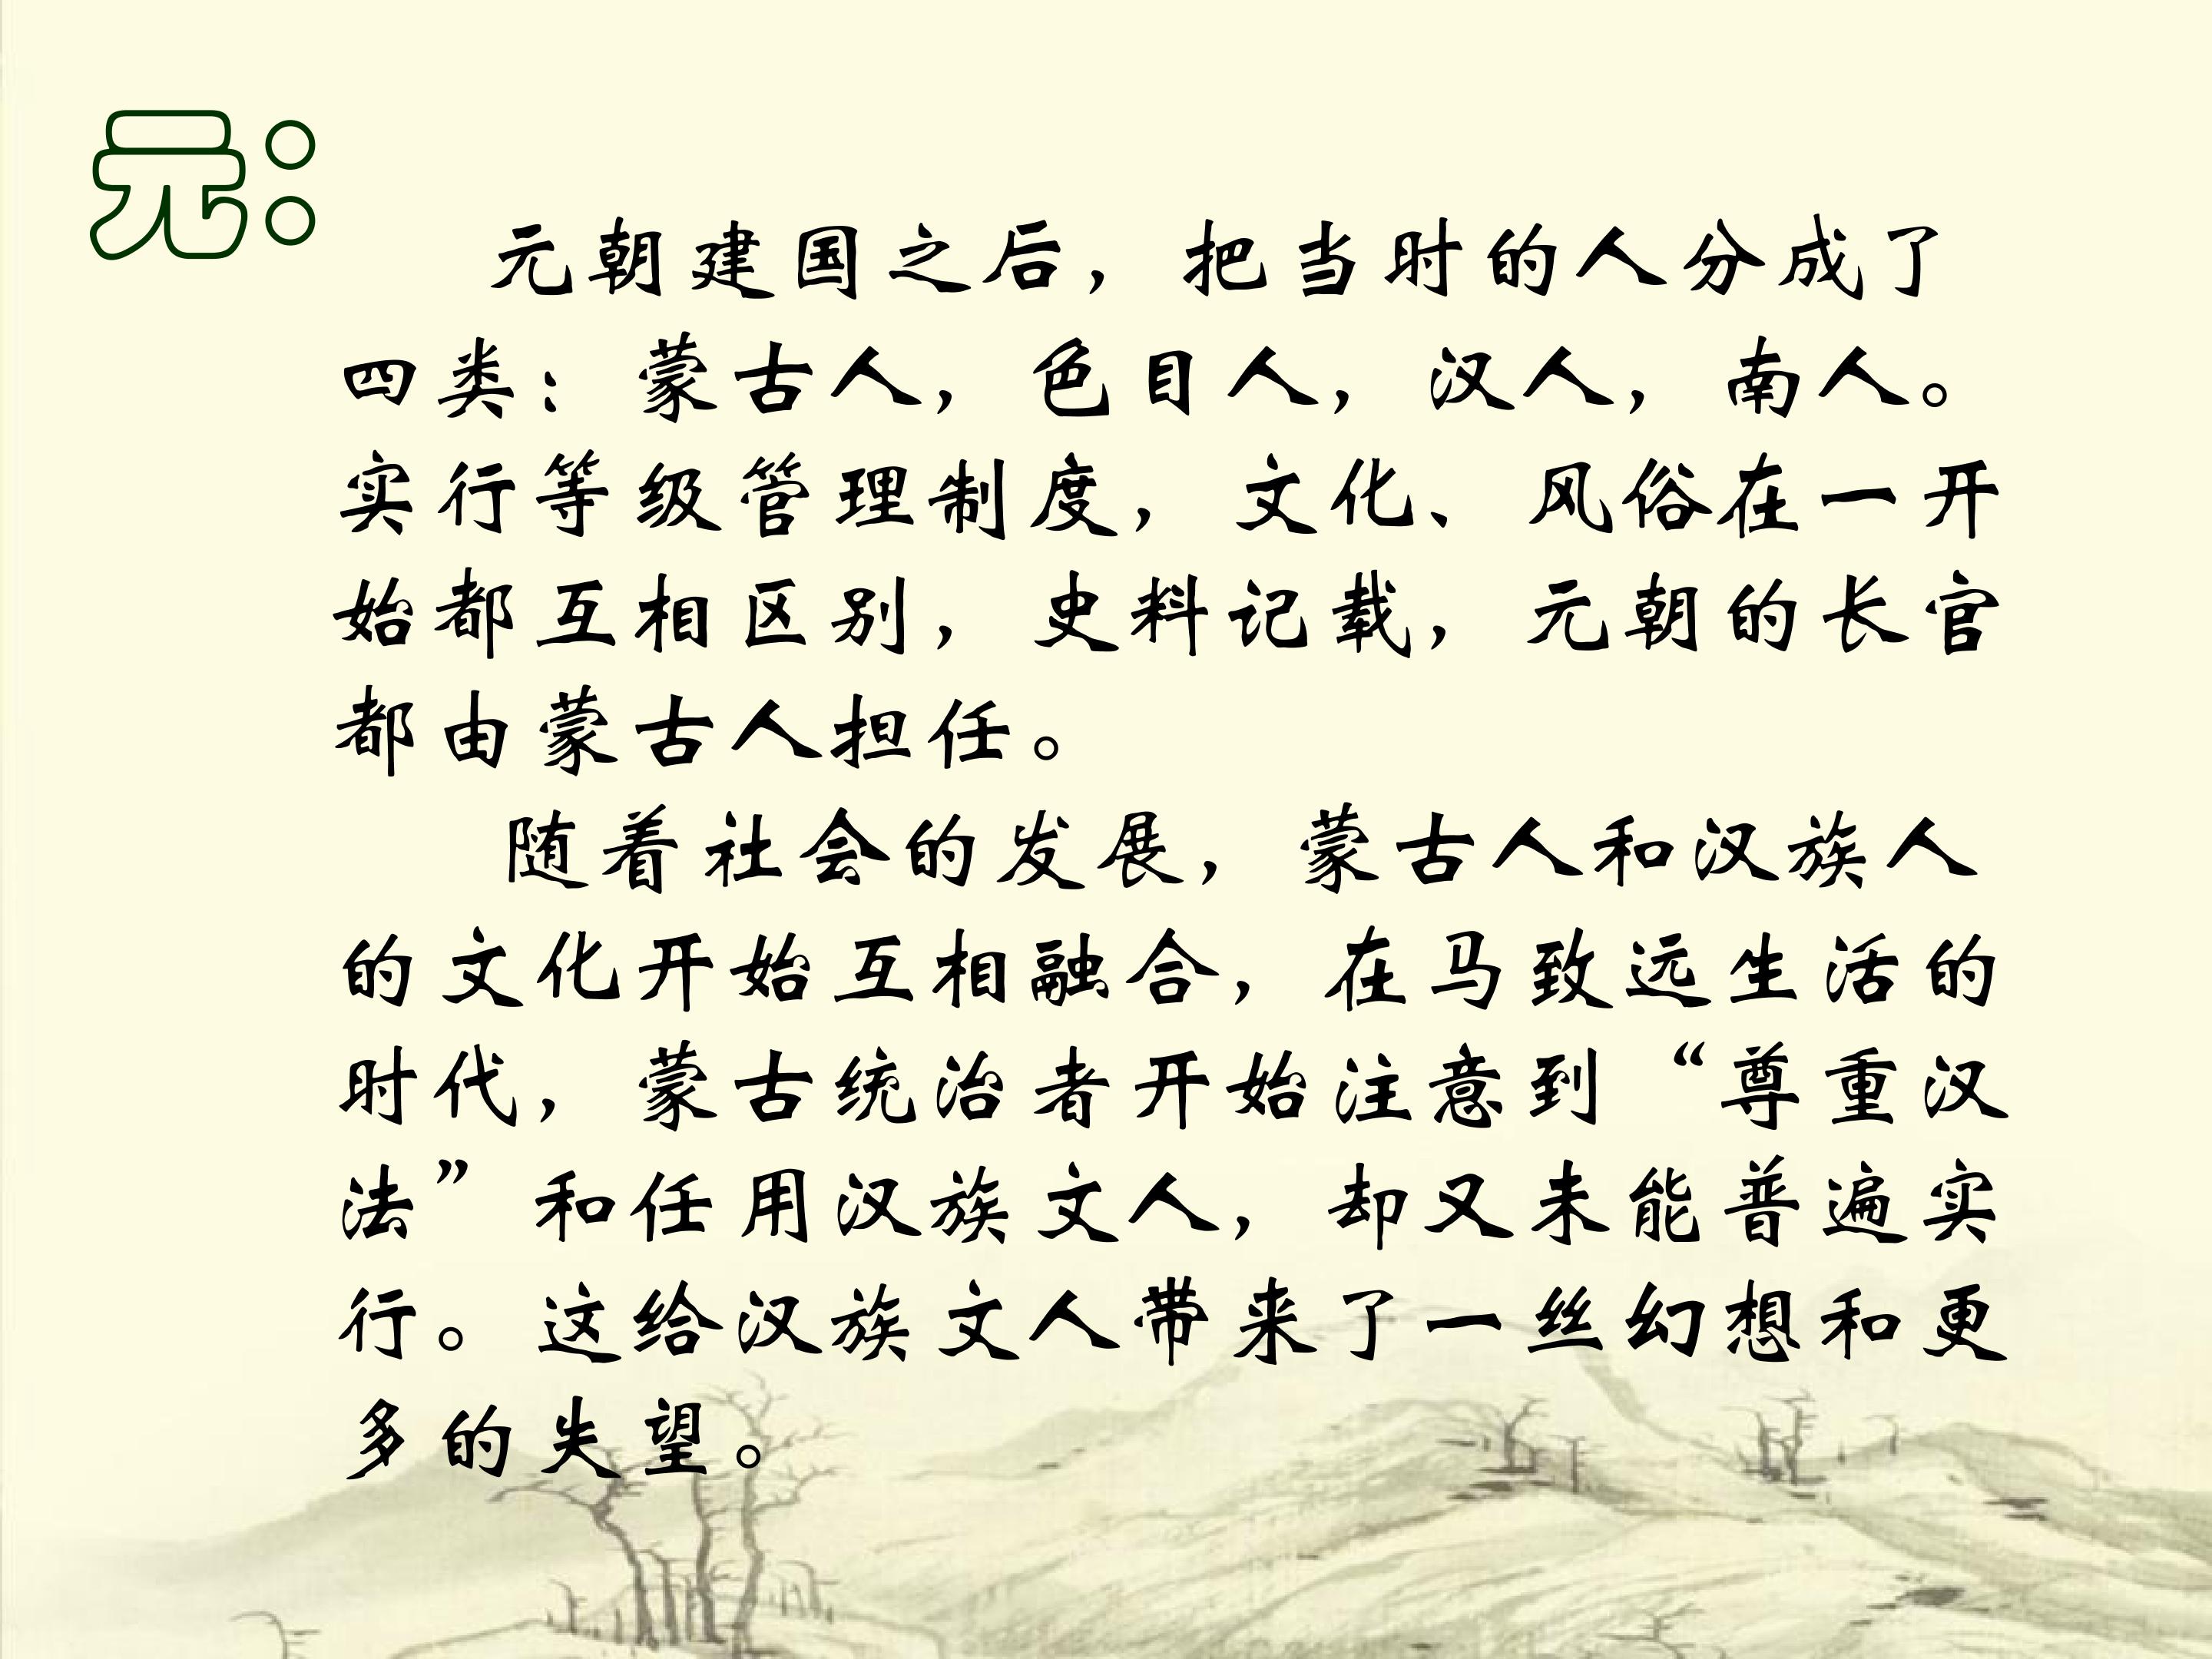 元：
元朝建国之后，把当时的人分成了
四类：蒙古人，色目人，汉人，南人。
实行等级管理制度，文化、风俗在一开
始都互相区别，史料记载，元朝的长官
都由蒙古人担任。
随着社会的发展，蒙古人和汉族人
的文化开始互相融合，在马致远生活的
时代，蒙古统治者开始注意到“尊重汉
法”和任用汉族文人，却又未能普遍实
行。这给汉族文人带来了一丝幻想和更
多的失望。